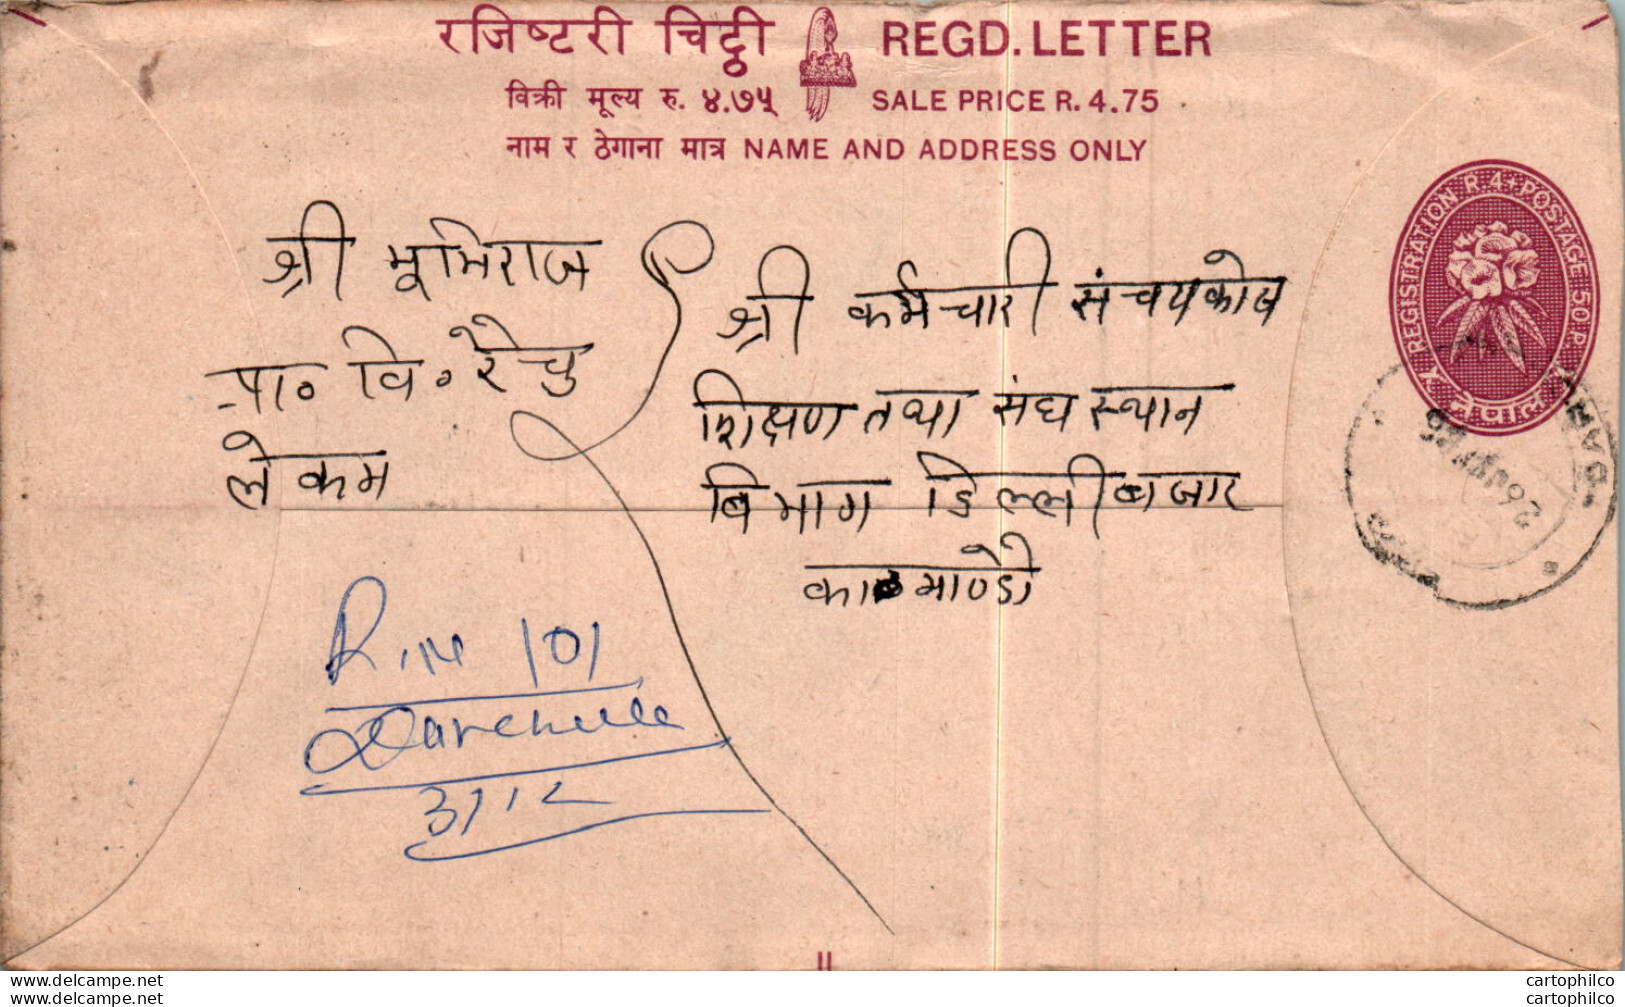 रजिष्टरी चिट्ठी REGD. LETTER
विक्री मूल्य रु. ४.७५ SALE PRICE R. 4.75
नाम र ठेगाना मात्र NAME AND ADDRESS ONLY
REGISTRATION R. 4 + POSTAGE 50 P.
नेपाल
श्री भूमिराज
प्रा० वि० रैचु
लेकम
श्री कर्मचारी संचयकोष
शिक्षण तथा संघ स्थान
बिभाग डिल्लीबजार
काठमाण्डौ
101
Darchula
3/12
cartophilco
cartophilco
cartophilco
cartophilco